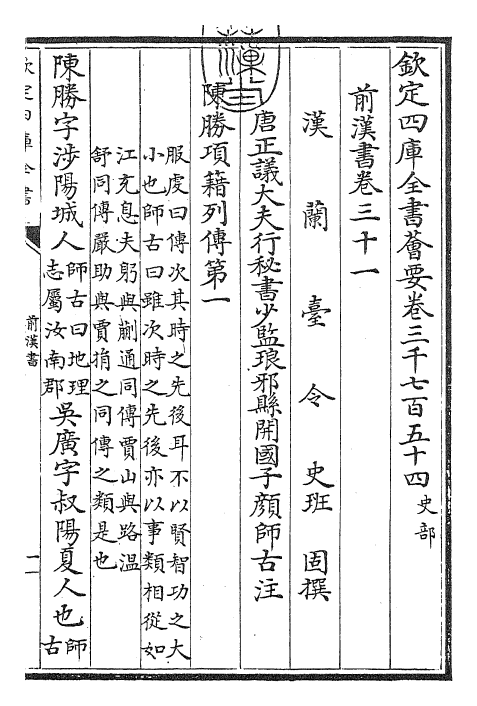 欽定四庫全書薈要卷三千七百五十四史部
前漢書卷三十一
漢蘭臺令史班固撰
唐正議大夫行秘書少監琅邪縣開國子顔師古注
陳勝項籍列傳第一
服虔曰傳次其時之先後耳不以賢智功之大
小也師古曰雖次時之先後亦以事類相從如
江充息夫躬與蒯通同傳賈山與路溫
舒同傳嚴助與賈捐之同傳之類是也
陳勝字涉陽城人師古曰地理志屬汝南郡吳廣字叔陽夏人也師古
前漢書
一